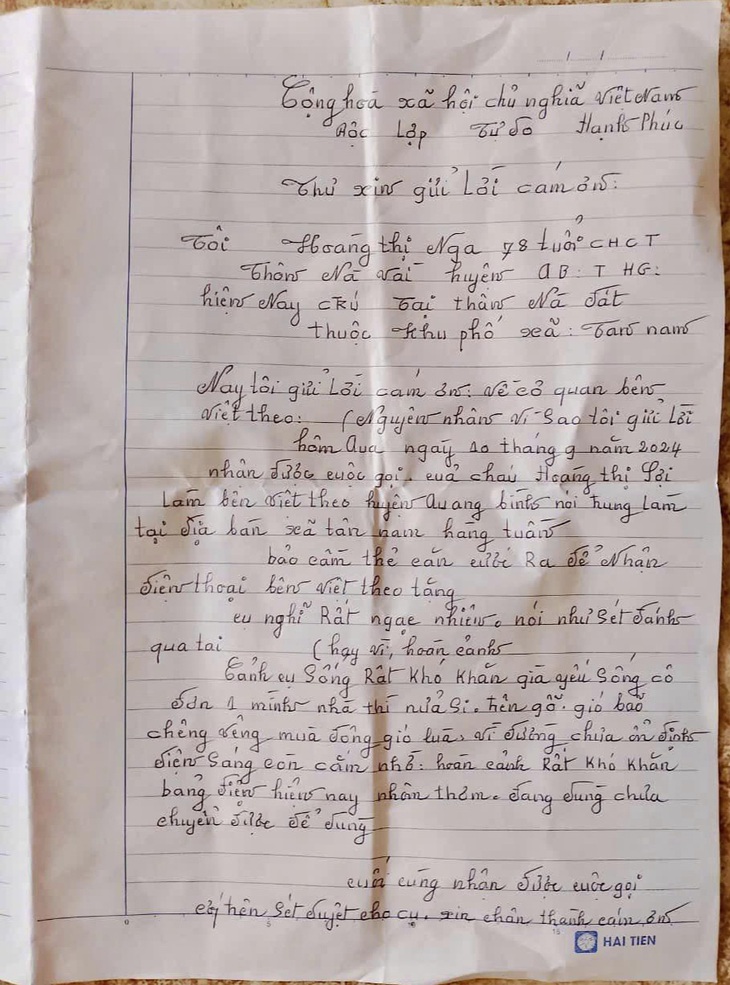 Cộng hoà xã hội chủ nghĩã Việt Nam
Độc Lập Tự do Hạnh Phúc
Thử xin gửi Lời cám ơn:
Tôi Hoàng thị Nga 78 tuổi CHCT
Thôn Nà Vài huyện QB: T HG:
hiện Nay cRú Tại thôn Nà đát
thuộc Khu phố xã: Tan nam
Nay tôi gửi Lời cám ơn: về cơ quan bên
Việt theo: (Nguyên nhân vì Sao tôi gửi Lời
hôm Qua ngày 10 tháng 9 năm 2024
nhân được cuộc gọi. cuả cháu Hoàng thị Sợi
Làm bên Việt theo huyện Quang bình nói hung làm
tại địa bàn xã tân nam hàng tuần
bảo cầm thẻ căn cước Ra để Nhận
điện thoại bên Việt theo tặng
cụ nghĩ Rất ngạc nhiên. nói như Sét đánh
qua tai (hay vì, hoàn cảnh
Cảnh cụ Sống Rất Khó Khăn già yếu Sống cô
đơn 1 mình nhà thì nửa Si. trên gỗ. gió bão
chênh vênh mùa đông gió luà, vì đường chưa ổn định
điện Sáng còn cắm nhờ: hoàn cảnh Rất Khó Khăn
bảng điện hiện nay nhôm thơm. đang dung chưa
chuyển được để dung
cuối cùng nhận được cuộc gọi
cấp trên Sét duyệt cho cụ. xin chân thành cám ơn
0 5 10 15
HAI TIEN